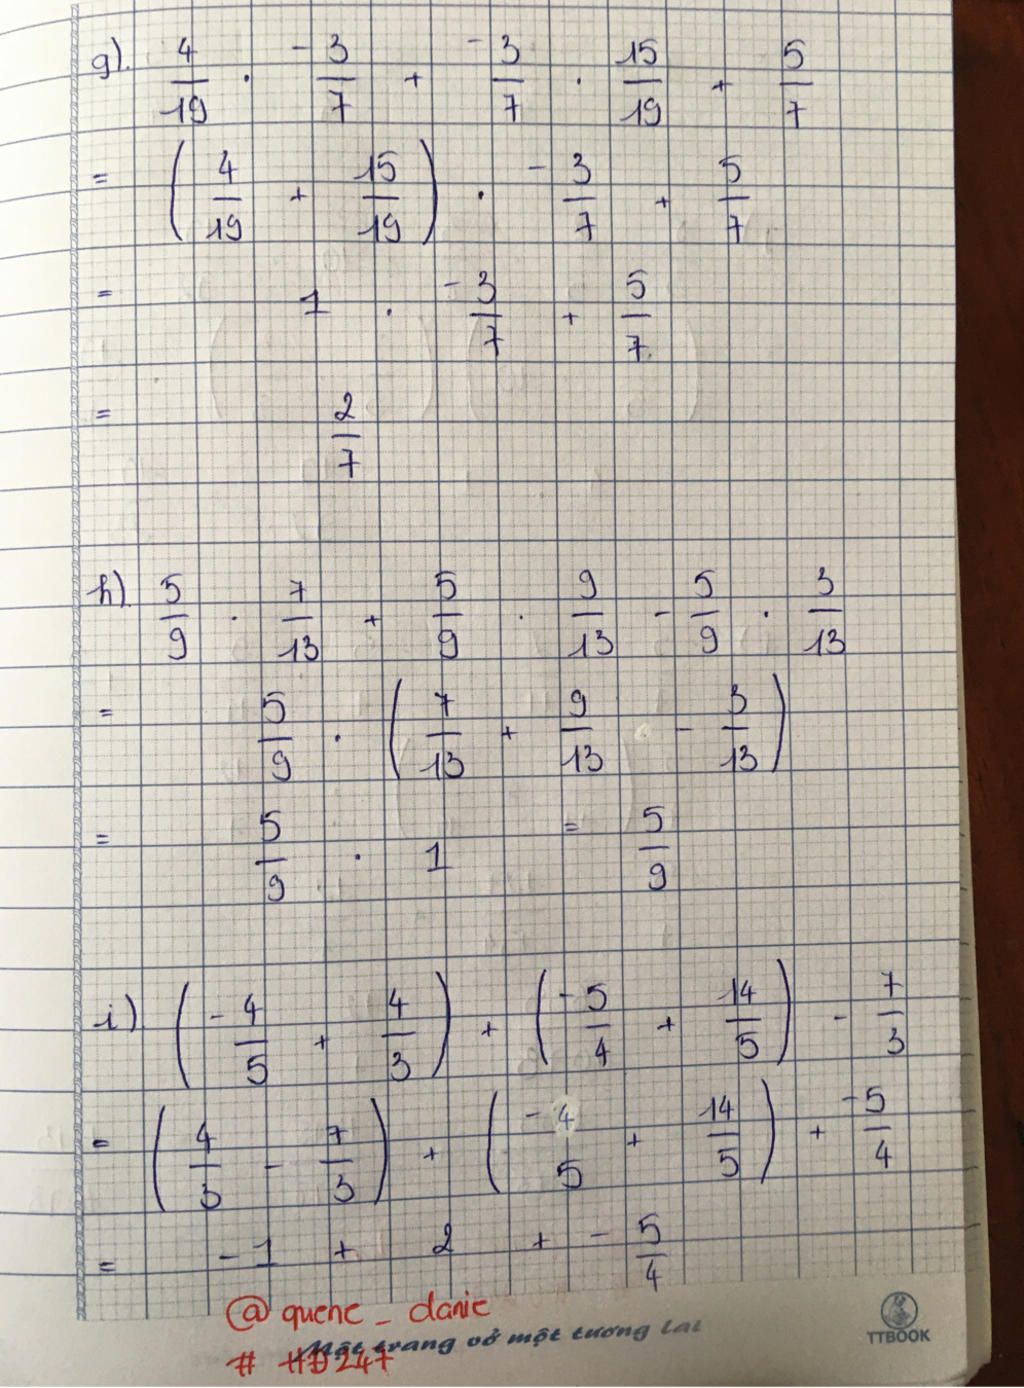 g) 4/19 . -3/7 + -3/7 . 15/19 + 5/7
= (4/19 + 15/19) . -3/7 + 5/7
= 1 . -3/7 + 5/7
= 2/7
h) 5/9 . 7/13 + 5/9 . 9/13 - 5/9 . 3/13
= 5/9 . (7/13 + 9/13 - 3/13)
= 5/9 . 1 = 5/9
i) (-4/5 + 4/3) + (-5/4 + 14/5) - 7/3
= (4/3 - 7/3) + (-4/5 + 14/5) + -5/4
= -1 + 2 + -5/4
@quene_danie
Một trang vở một tương lai
TTBOOK
# HĐ247